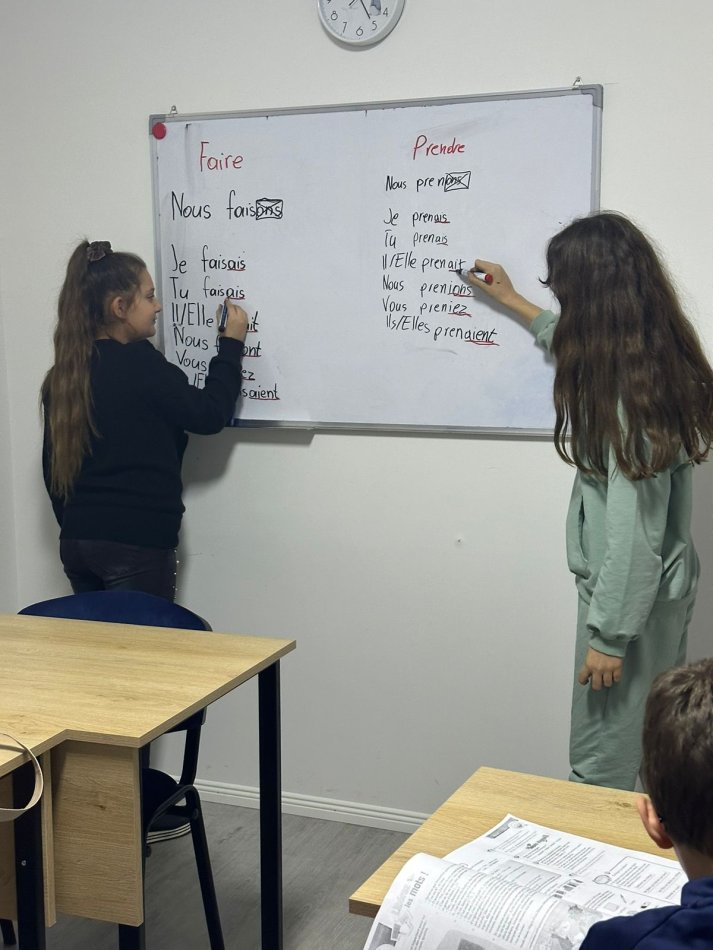 8 7 6 5 4
Faire
Nous faisons
Je faisais
Tu faisais
Il/Elle f it
Nous f ont
Vous ez
saient
Prendre
Nous prenons
Je prenais
Tu prenais
Il/Elle prenait
Nous prenions
Vous preniez
Ils/Elles prenaient
les mots !